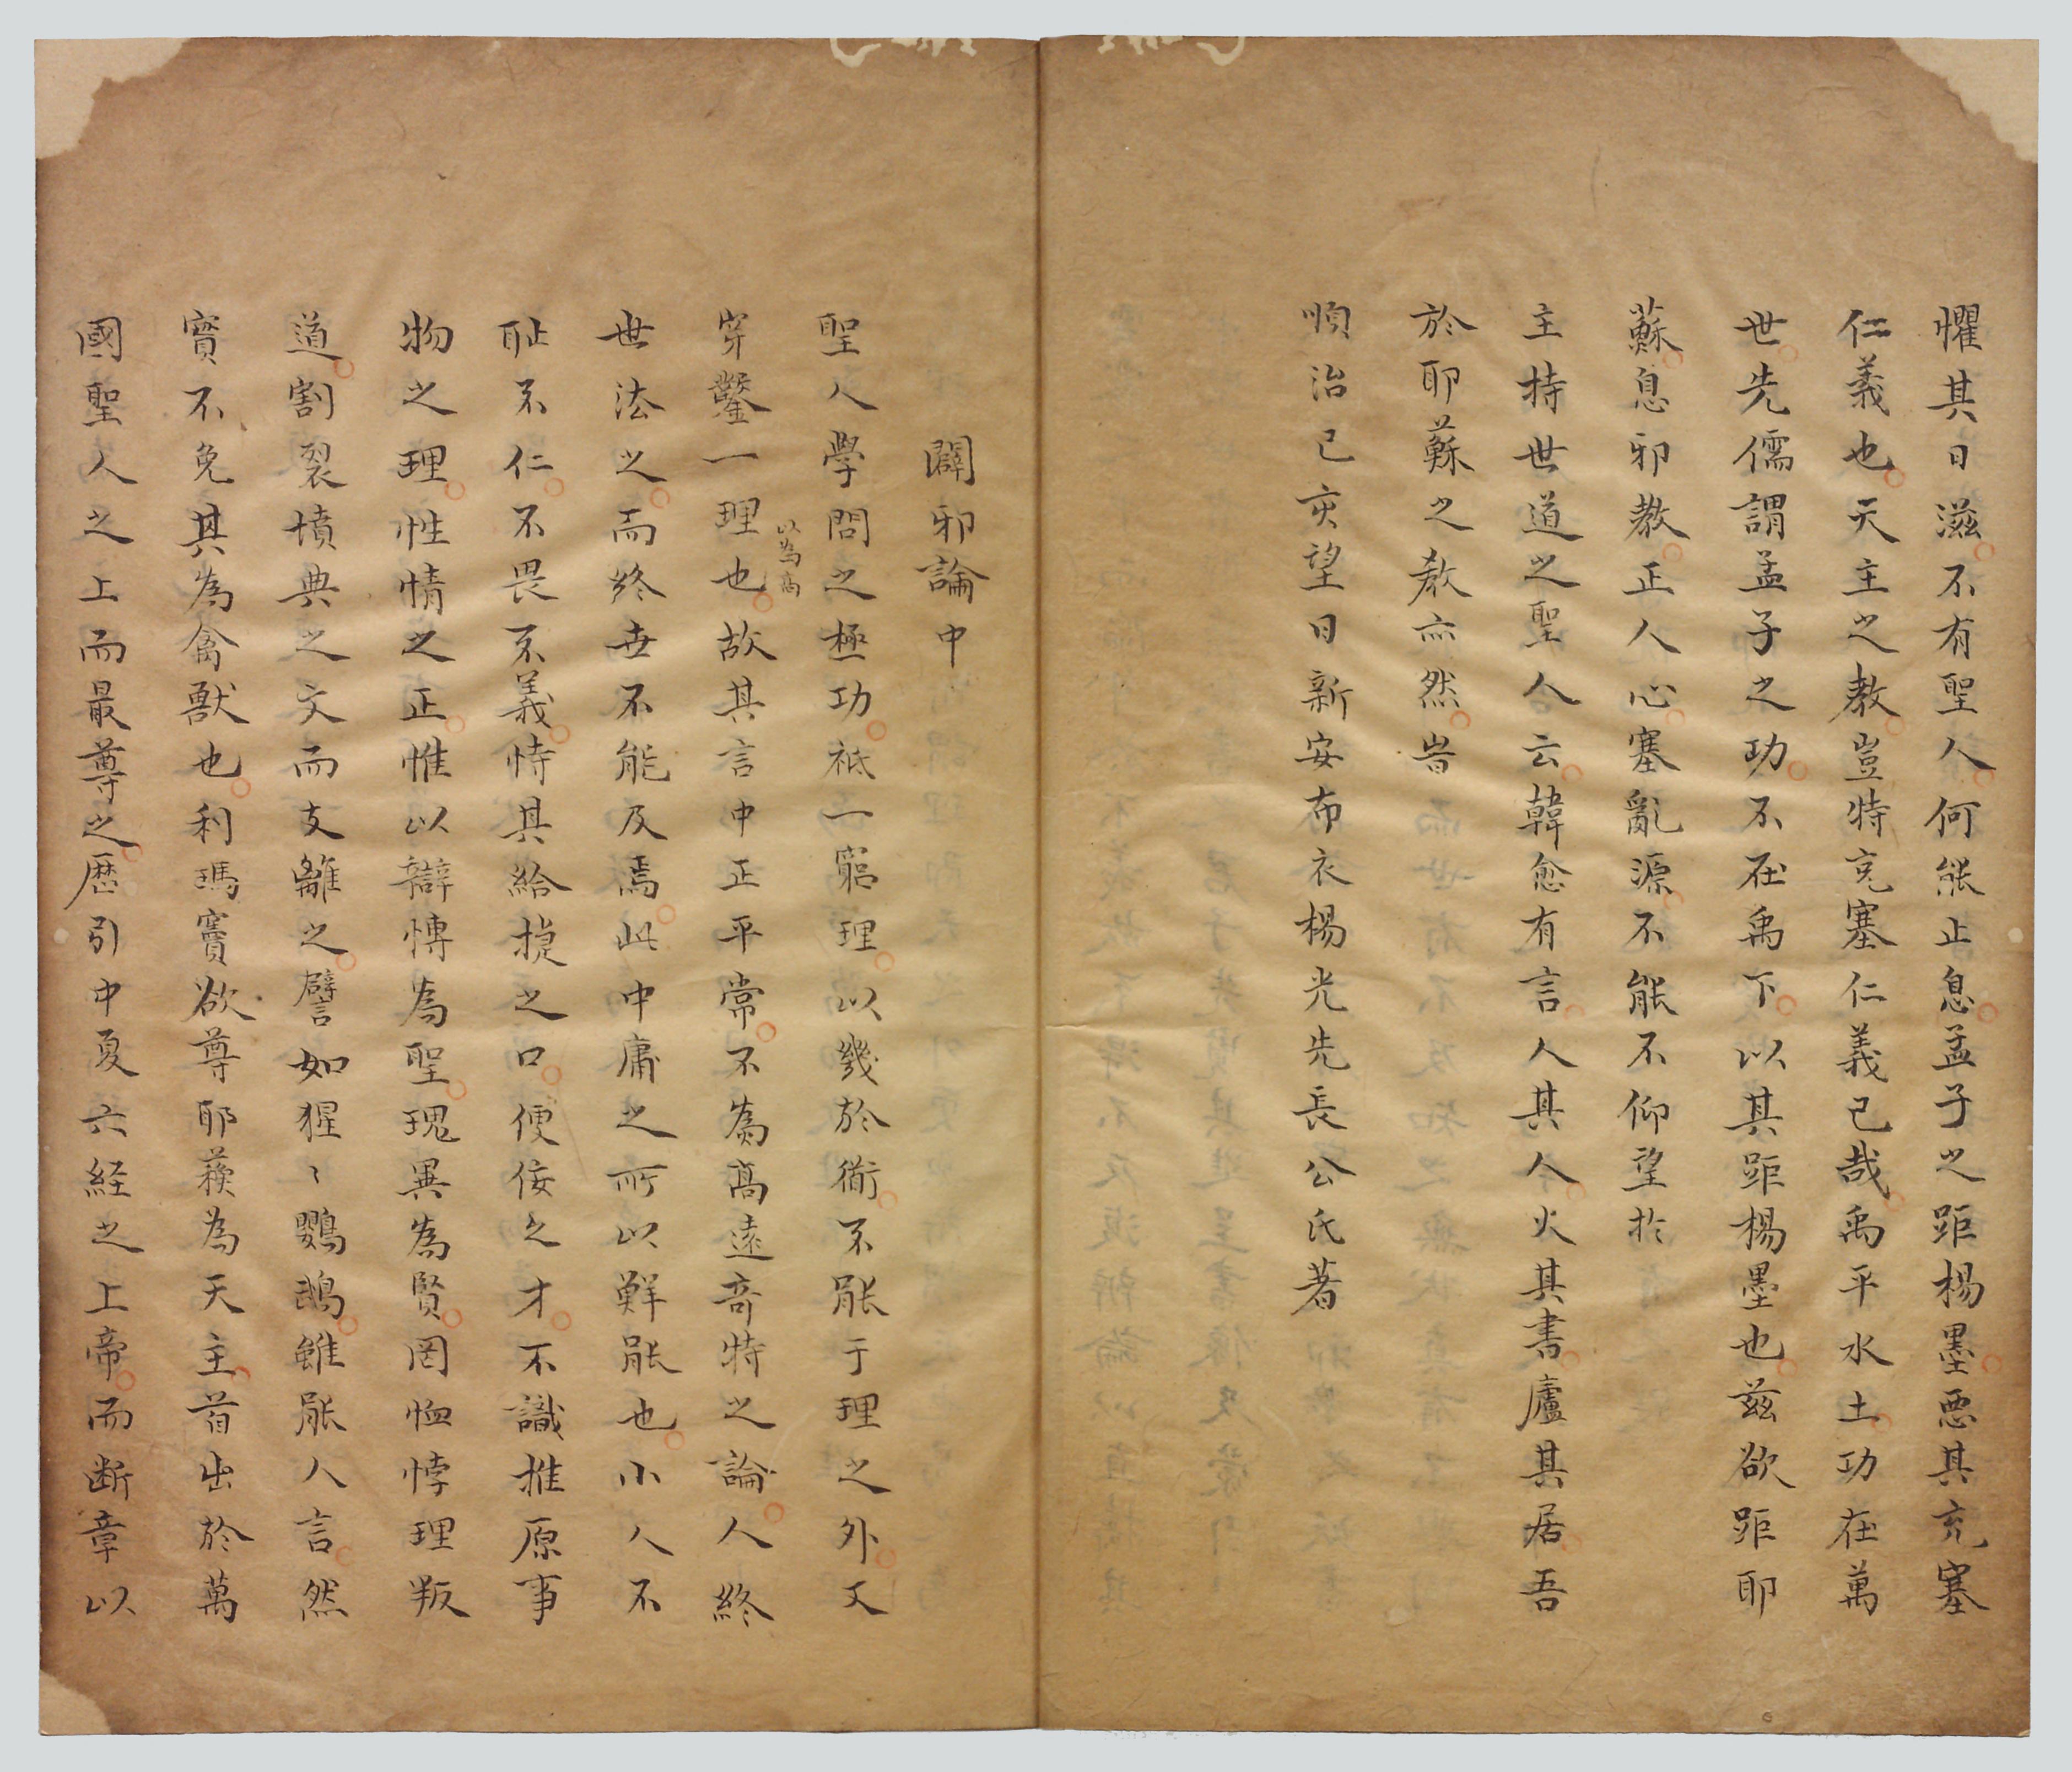 懼其日滋不有聖人何能止息孟子之距楊墨惡其充塞
仁義也天主之教豈特充塞仁義已哉禹平水土功在萬
世先儒謂孟子之功不在禹下以其距楊墨也兹欲距耶
蘇息邪教正人心塞亂源不能不仰望於
主持世道之聖人云韓愈有言人其人火其書廬其居吾
於耶蘇之教亦然旹
順治已亥望日新安布衣楊光先長公氏著
闢邪論中
聖人學問之極功祗一窮理以幾於衟不能于理之外又
穿鑿一理也故其言中正平常不為高遠奇特之論人終
以為高
世法之而終世不能及焉此中庸之所以鮮能也小人不
耻不仁不畏不義恃其給捷之口便佞之才不識推原事
物之理性情之正惟以辯博為聖瑰異為賢罔恤悖理叛
道割裂墳典之文而支離之譬如猩〻鸚鵡雖能人言然
實不免其為禽獸也利瑪竇欲尊耶蘇為天主首出於萬
國聖人之上而最尊之歷引中夏六経之上帝而断章以